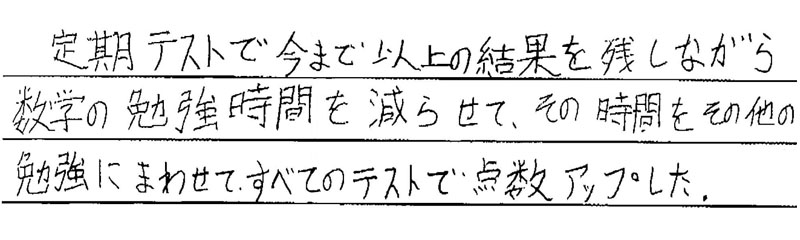 定期テストで今まで以上の結果を残しながら
数学の勉強時間を減らせて、その時間をその他の
勉強にまわせて、すべてのテストで点数アップした.